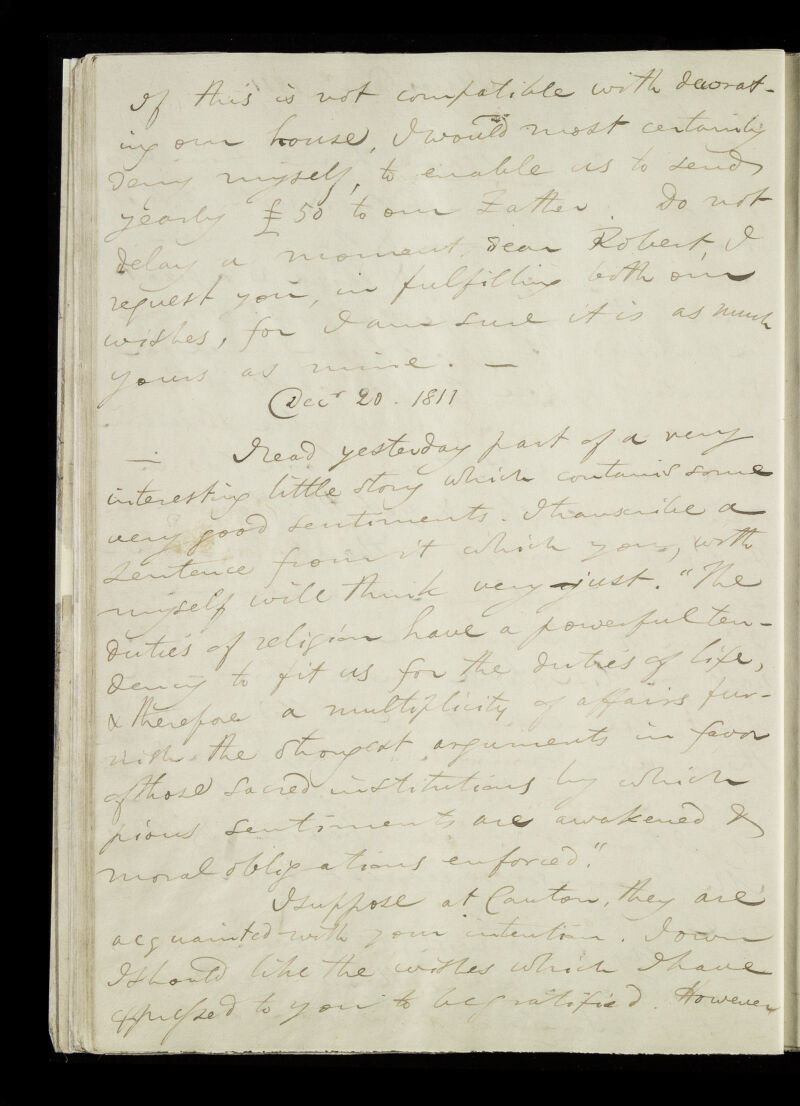 If this is not compatible with decorat-
ing our house, I would most certainly
deny myself, to enable us to send
yearly £50 to our Father. Do not
delay a moment, dear Robert, I
request you, in fulfilling both our
wishes, for I am sure it is as much
yours as mine. —
Decr 20. 1811
— I read yesterday part of a very
interesting little story which contains some
very good sentiments. I transcribe a
sentence from it which you, with
myself will think very just. "The
duties of religion have a powerful ten-
dency to fit us for the duties of life,
& therefore a multiplicity of affairs fur-
nish the strongest arguments in favor
of those sacred institutions by which
pious sentiments are awakened &
moral obligations enforced."
I suppose at Canton, they are
acquainted with your intention. I own
I should like the wishes which I have
expressed to you to be gratified. However